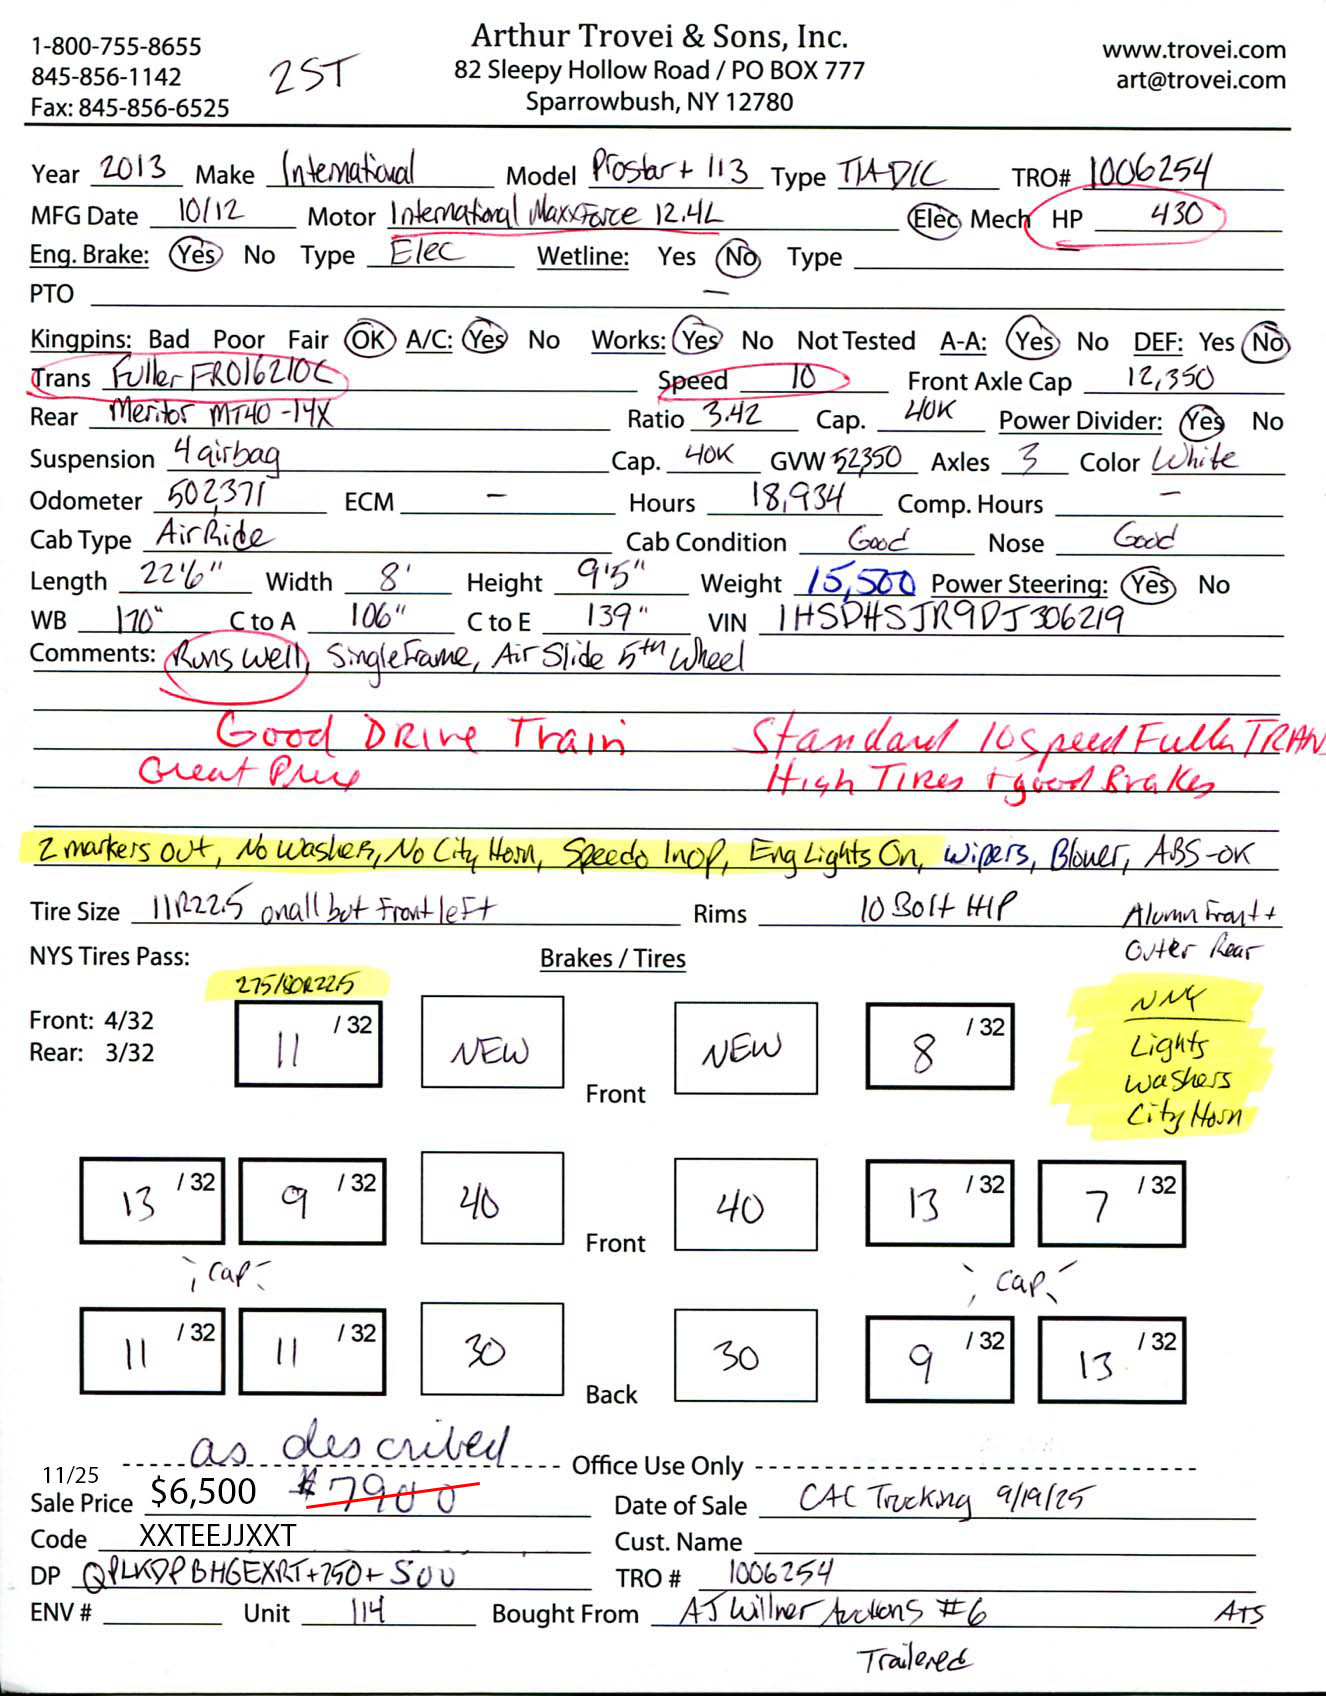 Arthur Trovei & Sons, Inc.
1-800-755-8655 www.trovei.com
845-856-1142 2ST 82 Sleepy Hollow Road / PO BOX 777 art@trovei.com
Fax: 845-856-6525 Sparrowbush, NY 12780
Year 2013 Make International Model Prostar+ 113 Type T/A D/C TRO# 1006254
MFG Date 10/12 Motor International MaxxForce 12.4L Elec Mech HP 430
Eng. Brake: Yes No Type Elec Wetline: Yes No Type
PTO —
Kingpins: Bad Poor Fair OK A/C: Yes No Works: Yes No Not Tested A-A: Yes No DEF: Yes No
Trans Fuller FRO16210C Speed 10 Front Axle Cap 12,350
Rear Meritor MT40-14X Ratio 3.42 Cap. 40K Power Divider: Yes No
Suspension 4 airbag Cap. 40K GVW 52,350 Axles 3 Color White
Odometer 502,371 ECM — Hours 18,934 Comp. Hours —
Cab Type Air Ride Cab Condition Good Nose Good
Length 22'6" Width 8' Height 9'5" Weight 15,500 Power Steering: Yes No
WB 170" C to A 106" C to E 139" VIN 1HSDHSJR9DJ306219
Comments: Runs well, Single Frame, Air Slide 5th Wheel
Good Drive Train Standard 10 speed Fuller TRAN
Great Price High Tires + good Brakes
2 markers out, No Washers, No City Horn, Speedo Inop, Eng Lights On, Wipers, Blower, ABS-OK
Tire Size 11R22.5 on all but Front left Rims 10 Bolt HP Alumn Front +
Outer Rear
NYS Tires Pass: Brakes / Tires
275/80R22.5
Front: 4/32 11 /32 NEW NEW 8 /32 NNY
Rear: 3/32 Lights
Front Washers
City Horn
13 /32 9 /32 40 40 13 /32 7 /32
Front
Cap Cap
11 /32 11 /32 30 30 9 /32 13 /32
Back
as described Office Use Only
11/25
Sale Price $6,500 $7900 Date of Sale CAC Trucking 9/19/25
Code XXTEEJJXXT Cust. Name
DP QPLKDPBHGEXRT+250+500 TRO # 1006254
ENV # Unit 114 Bought From AJ Willner Auctions #6 ATS
Trailered